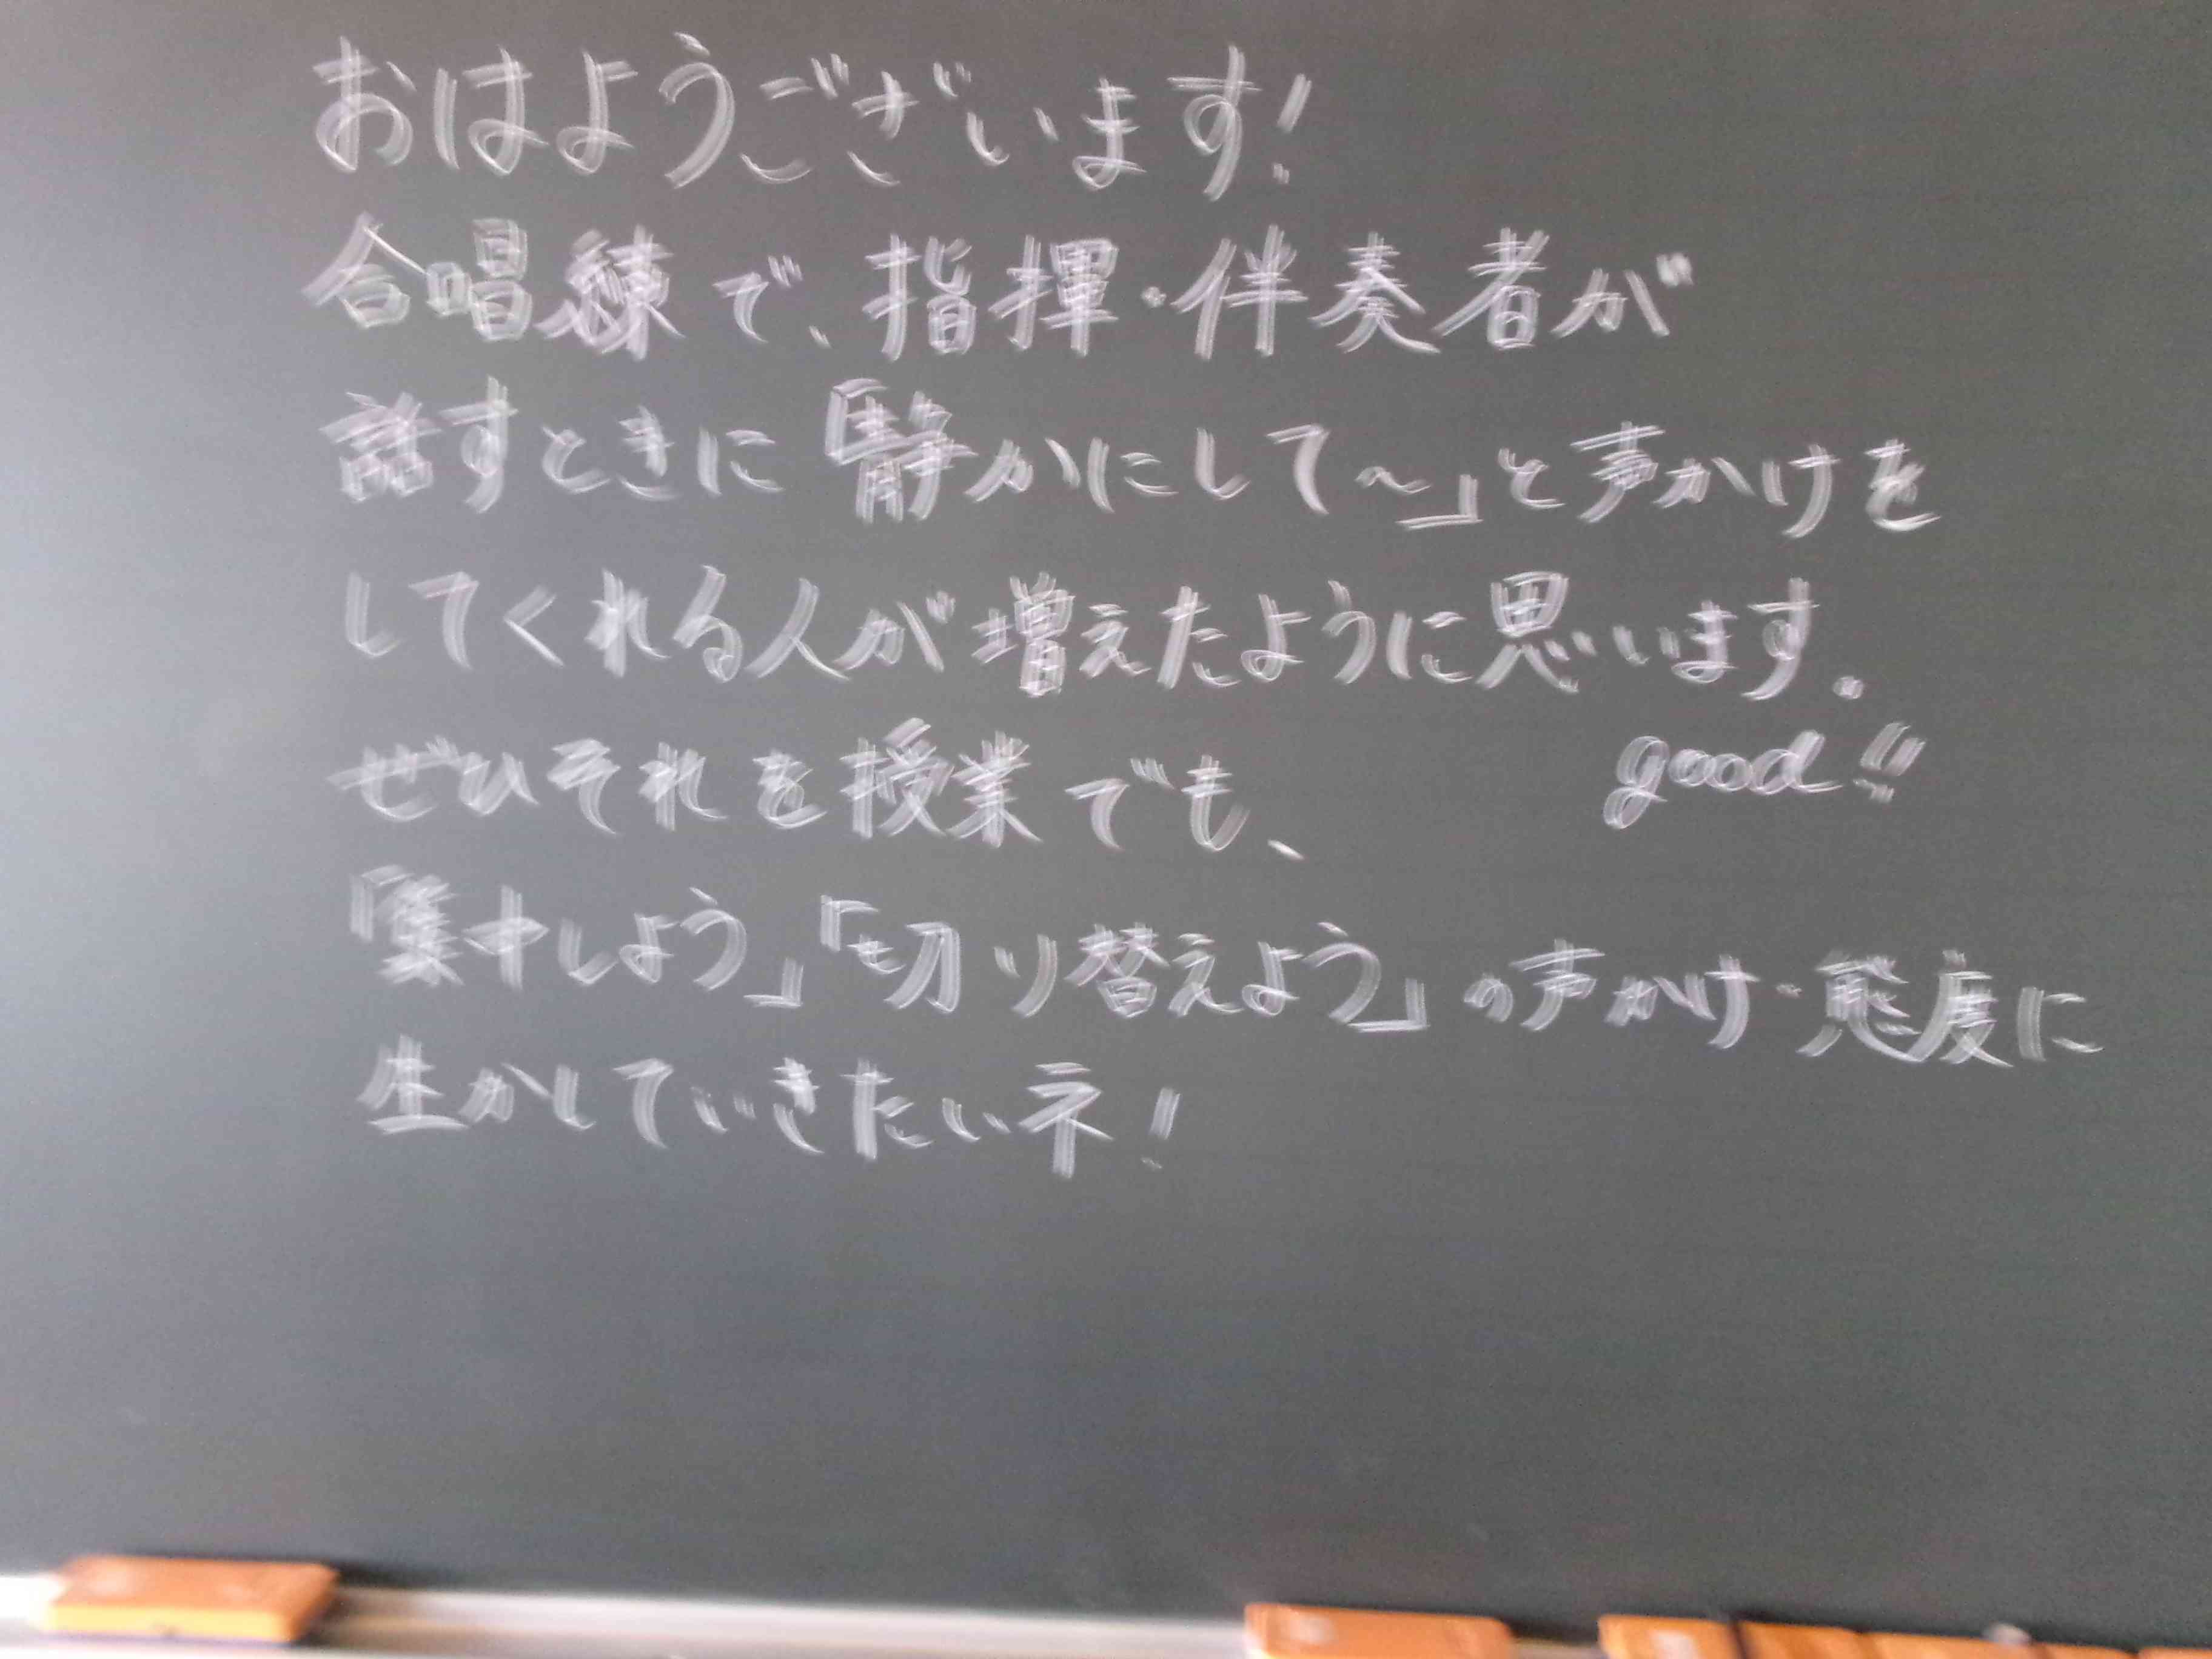 おはようございます!
合唱練で、指揮・伴奏者が
話すときに「静かにして〜」と声かけを
してくれる人が増えたように思います。
good!!
ぜひそれを授業でも、
「集中しよう」「切り替えよう」の声かけ・態度に
生かしていきたいネ!